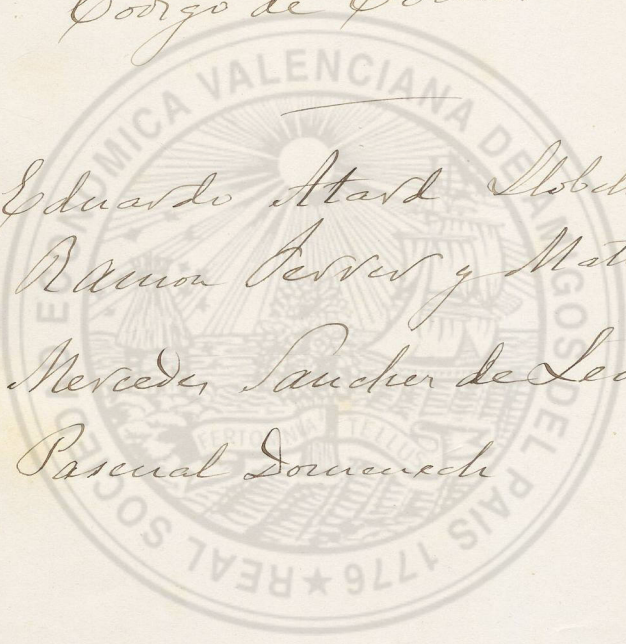 Codigo de
Eduardo Atard Llobell
Ramon Ferrer y Mat
Mercedes Sanchez de Leo
Pascual Domenech
REAL SOCIEDAD ECONOMICA VALENCIANA DE AMIGOS DEL PAIS 1776
FERTO OMNIA TELLUS